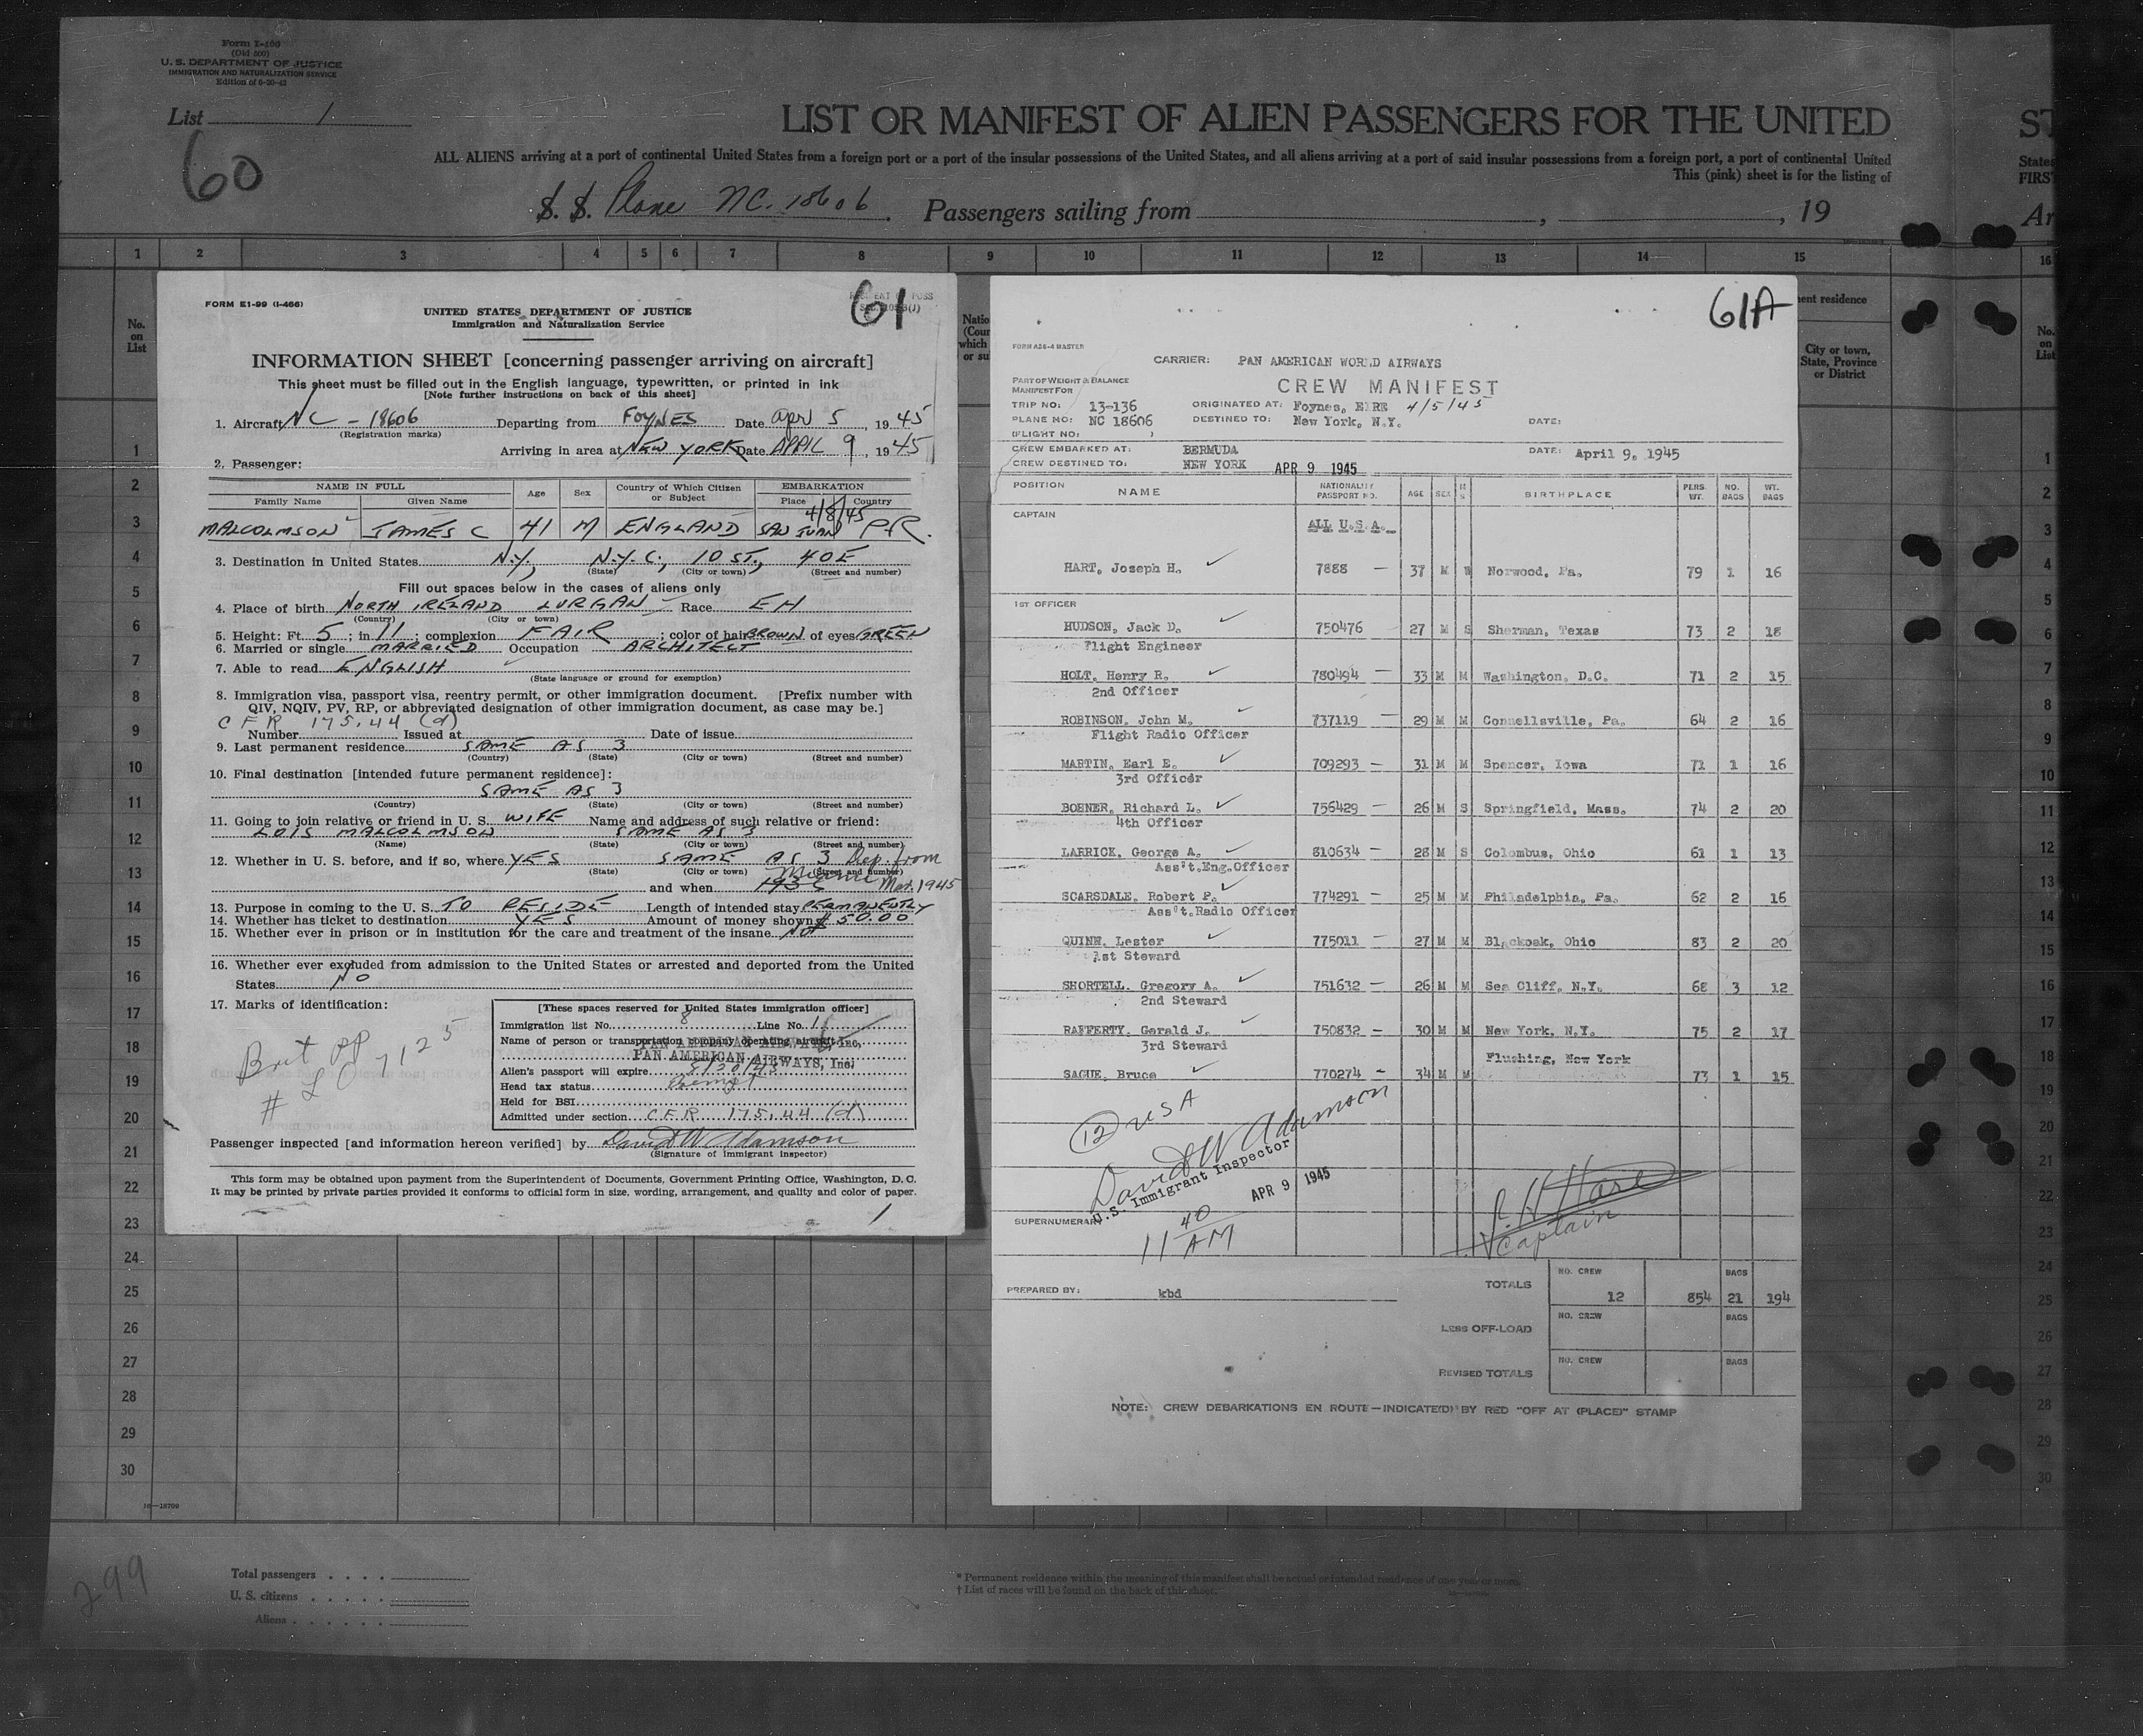 Form I-400
(Old 500)
U. S. DEPARTMENT OF JUSTICE
IMMIGRATION AND NATURALIZATION SERVICE
Edition of 8-20-42
List 1
60
LIST OR MANIFEST OF ALIEN PASSENGERS FOR THE UNITED
ST
ALL ALIENS arriving at a port of continental United States from a foreign port or a port of the insular possessions of the United States, and all aliens arriving at a port of said insular possessions from a foreign port, a port of continental United
States
This (pink) sheet is for the listing of
FIRST
S. S. Plane NC. 18606 Passengers sailing from , , 19
Ar
1 2 3 4 5 6 7 8 9 10 11 12 13 14 15 16
No. on List
FORM E1-99 (I-466)
61
UNITED STATES DEPARTMENT OF JUSTICE
Immigration and Naturalization Service
INFORMATION SHEET [concerning passenger arriving on aircraft]
This sheet must be filled out in the English language, typewritten, or printed in ink
[Note further instructions on back of this sheet]
1. Aircraft NC - 18606 Departing from FOYNES Date Apr 5, 1945
(Registration marks)
Arriving in area at NEW YORK Date APRIL 9, 1945
2. Passenger:
NAME IN FULL Age Sex Country of Which Citizen or Subject EMBARKATION
Family Name Given Name Place Country
4/8/45
MALCOLMSON JAMES C 41 M ENGLAND SAN JUAN P.R.
3. Destination in United States N.Y., N.Y.C., 10 ST., 40E
(State) (City or town) (Street and number)
Fill out spaces below in the cases of aliens only
4. Place of birth NORTH IRELAND LURGAN Race EH
(Country) (City or town)
5. Height: Ft. 5; in 11; complexion FAIR; color of hair BROWN of eyes GREEN
6. Married or single MARRIED Occupation ARCHITECT
7. Able to read ENGLISH
(State language or ground for exemption)
8. Immigration visa, passport visa, reentry permit, or other immigration document. [Prefix number with
QIV, NQIV, PV, RP, or abbreviated designation of other immigration document, as case may be.]
CFR 175.44 (d)
Number Issued at Date of issue
9. Last permanent residence SAME AS 3
(Country) (State) (City or town) (Street and number)
10. Final destination [intended future permanent residence]:
SAME AS 3
(Country) (State) (City or town) (Street and number)
11. Going to join relative or friend in U. S. WIFE Name and address of such relative or friend:
LOIS MALCOLMSON SAME AS 3
(Name) (State) (City or town) (Street and number)
12. Whether in U. S. before, and if so, where YES SAME AS 3 Dep. from
(State) (City or town) (Street and number)
Miami
and when Mar. 1945
13. Purpose in coming to the U. S. TO RESIDE Length of intended stay PERMANENTLY
14. Whether has ticket to destination YES Amount of money shown $50.00
15. Whether ever in prison or in institution for the care and treatment of the insane
16. Whether ever excluded from admission to the United States or arrested and deported from the United
States NO
17. Marks of identification:
Brit PP
# L 07125
[These spaces reserved for United States immigration officer]
Immigration list No. 8 Line No. 1
Name of person or transportation company operating aircraft
PAN AMERICAN AIRWAYS, Inc.
Alien's passport will expire
Head tax status Exempt
Held for BSI
Admitted under section CFR 175.44 (d)
Passenger inspected [and information hereon verified] by David W Adamson
(Signature of immigrant inspector)
This form may be obtained upon payment from the Superintendent of Documents, Government Printing Office, Washington, D. C.
It may be printed by private parties provided it conforms to official form in size, wording, arrangement, and quality and color of paper.
1
61A
FORM A26-4 MASTER
CARRIER: PAN AMERICAN WORLD AIRWAYS
PART OF WEIGHT & BALANCE
MANIFEST FOR
CREW MANIFEST
TRIP NO: 13-136 ORIGINATED AT: Foynes, EIRE 4/5/45
PLANE NO: NC 18606 DESTINED TO: New York, N.Y. DATE:
(FLIGHT NO: )
CREW EMBARKED AT: BERMUDA DATE: April 9, 1945
CREW DESTINED TO: NEW YORK APR 9 1945
POSITION NAME NATIONALITY PASSPORT NO. AGE SEX M S BIRTHPLACE PERS. WT. NO. BAGS WT. BAGS
CAPTAIN ALL U.S.A.
HART, Joseph H. 7888 — 37 M Norwood, Pa. 79 1 16
1ST OFFICER
HUDSON, Jack D. 750476 27 M S Sherman, Texas 73 2 18
Flight Engineer
HOLT, Henry R. 780494 — 33 M M Washington, D.C. 71 2 15
2nd Officer
ROBINSON, John M. 737119 — 29 M M Connellsville, Pa. 64 2 16
Flight Radio Officer
MARTIN, Earl E. 709293 — 31 M M Spencer, Iowa 71 1 16
3rd Officer
BOHNER, Richard L. 756429 — 26 M S Springfield, Mass. 74 2 20
4th Officer
LARRICK, George A. 810634 — 28 M S Colombus, Ohio 61 1 13
Ass't.Eng.Officer
SCARSDALE, Robert P. 774291 — 25 M M Philadelphia, Pa. 62 2 16
Ass't.Radio Officer
QUINN, Lester 775011 — 27 M M Blackoak, Ohio 83 2 20
1st Steward
SHORTELL, Gregory A. 751632 — 26 M M Sea Cliff, N.Y. 68 3 12
2nd Steward
RAFFERTY, Gerald J. 750832 — 30 M M New York, N.Y. 75 2 17
3rd Steward
Flushing, New York
SAGUE, Bruce 770274 — 34 M M 73 1 15
12 USA
David W Adamson
U.S. Immigrant Inspector
APR 9 1945
J. H. Hart
Captain
SUPERNUMERARY
11 40 AM
PREPARED BY: kbd
TOTALS NO. CREW 12 854 BAGS 21 194
LESS OFF-LOAD NO. CREW BAGS
REVISED TOTALS NO. CREW BAGS
NOTE: CREW DEBARKATIONS EN ROUTE—INDICATE(D) BY RED "OFF AT (PLACE)" STAMP
City or town, State, Province or District
1
2
3
4
5
6
7
8
9
10
11
12
13
14
15
16
17
18
19
20
21
22
23
24
25
26
27
28
29
30
16—18709
299
Total passengers
U. S. citizens
Aliens
* Permanent residence within the meaning of this manifest shall be actual or intended residence of one year or more.
† List of races will be found on the back of this sheet.